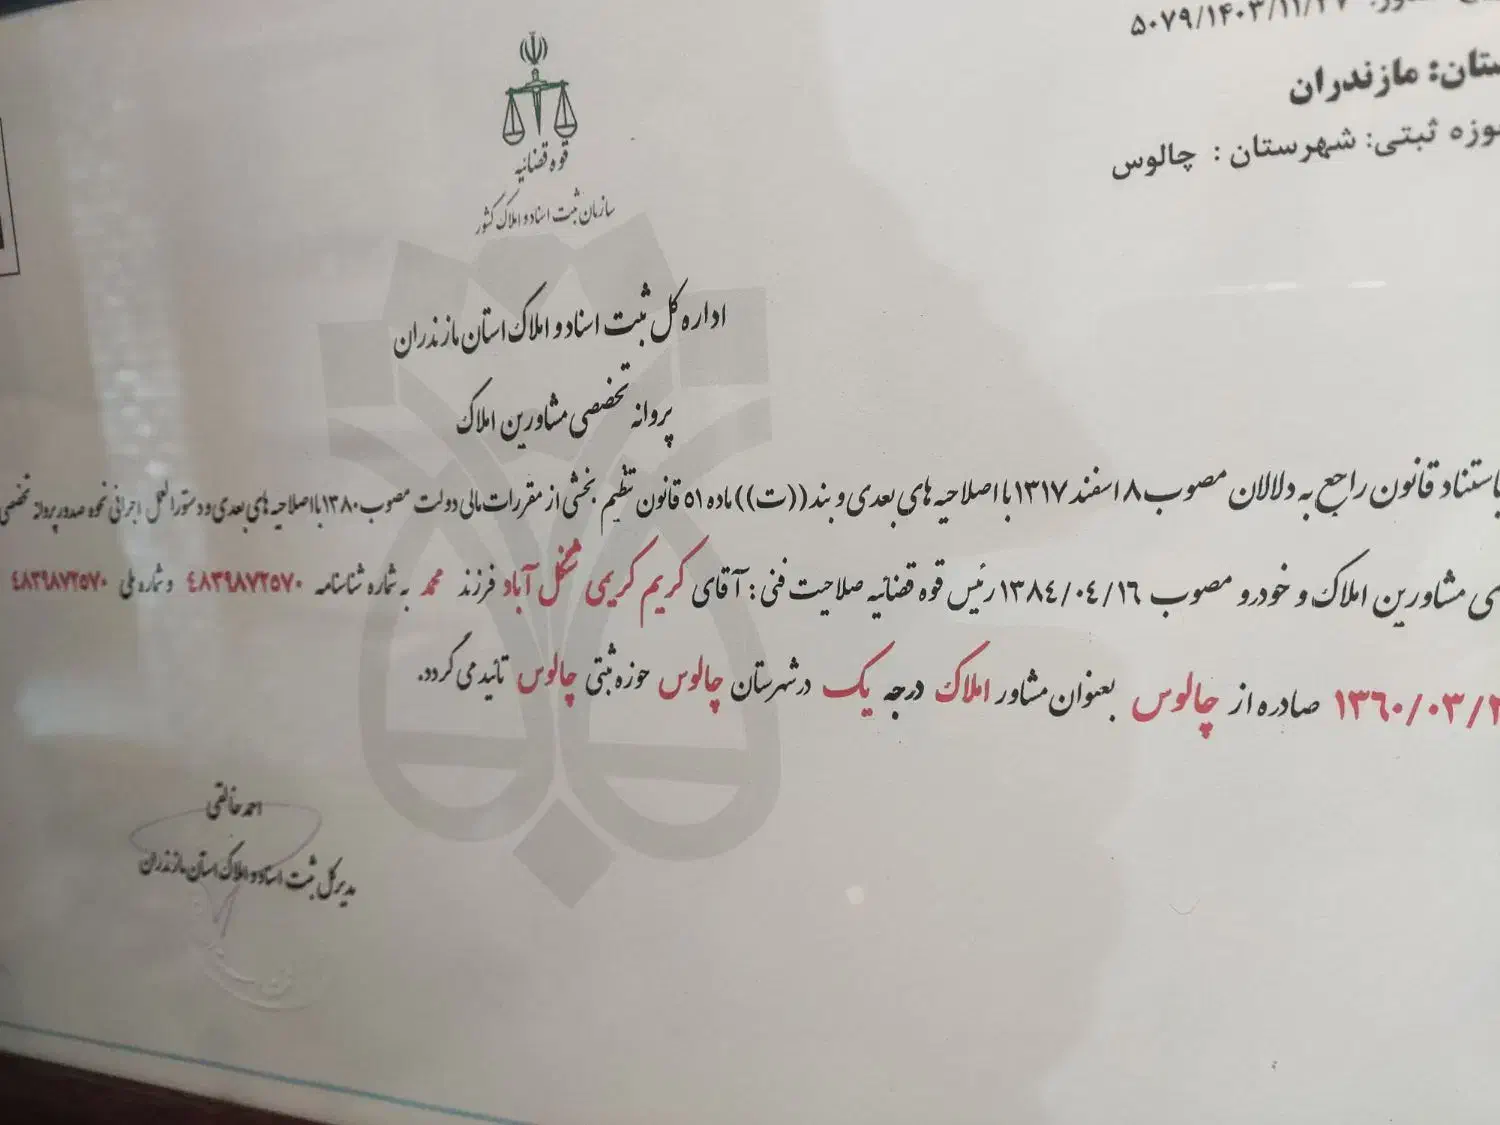 ۵۰۷۹/۱۴۰۳/۱۱/۲۷
ستان: مازندران
حوزه ثبتی: شهرستان : چالوس
قوه قضائیه
سازمان ثبت اسناد و املاک کشور
اداره کل ثبت اسناد و املاک استان مازندران
پروانه تخصصی مشاورین املاک
باستناد قانون راجع به دلالان مصوب ۸ اسفند ۱۳۱۷ با اصلاحیه های بعدی و بند ((ت)) ماده ۵۱ قانون تنظیم بخشی از مقررات مالی دولت مصوب ۱۳۸۰ با اصلاحیه های بعدی و دستورالعمل اجرائی نحوه صدور پروانه تخصصی
ی مشاورین املاک و خودرو مصوب ۱۳۸۴/۰۴/۱۶ رئیس قوه قضائیه صلاحیت فنی : آقای کریم کریمی شگل آباد فرزند محمد به شماره شناسنامه ۴۸۳۹۸۷۲۵۷۰ و شماره ملی ۴۸۳۹۸۷۲۵۷۰
۱۳۶۰/۰۳/۲ صادره از چالوس بعنوان مشاور املاک درجه یک در شهرستان چالوس حوزه ثبتی چالوس تائید می گردد.
احمد خالقی
مدیر کل ثبت اسناد و املاک استان مازندران